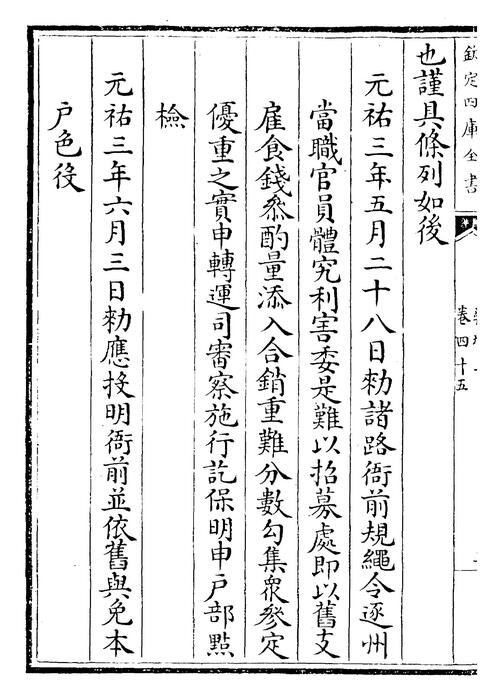 欽定四庫全書
卷四十五
也謹具條列如後
元祐三年五月二十八日勑諸路衙前規繩令逐州
當職官員體究利害委是難以招募處即以舊支
雇食錢叅酌量添入合銷重難分數勾集衆參定
優重之實申轉運司審察施行訖保明申戶部㸃
檢
元祐三年六月三日勑應投明衙前並依舊與免本
戶色役